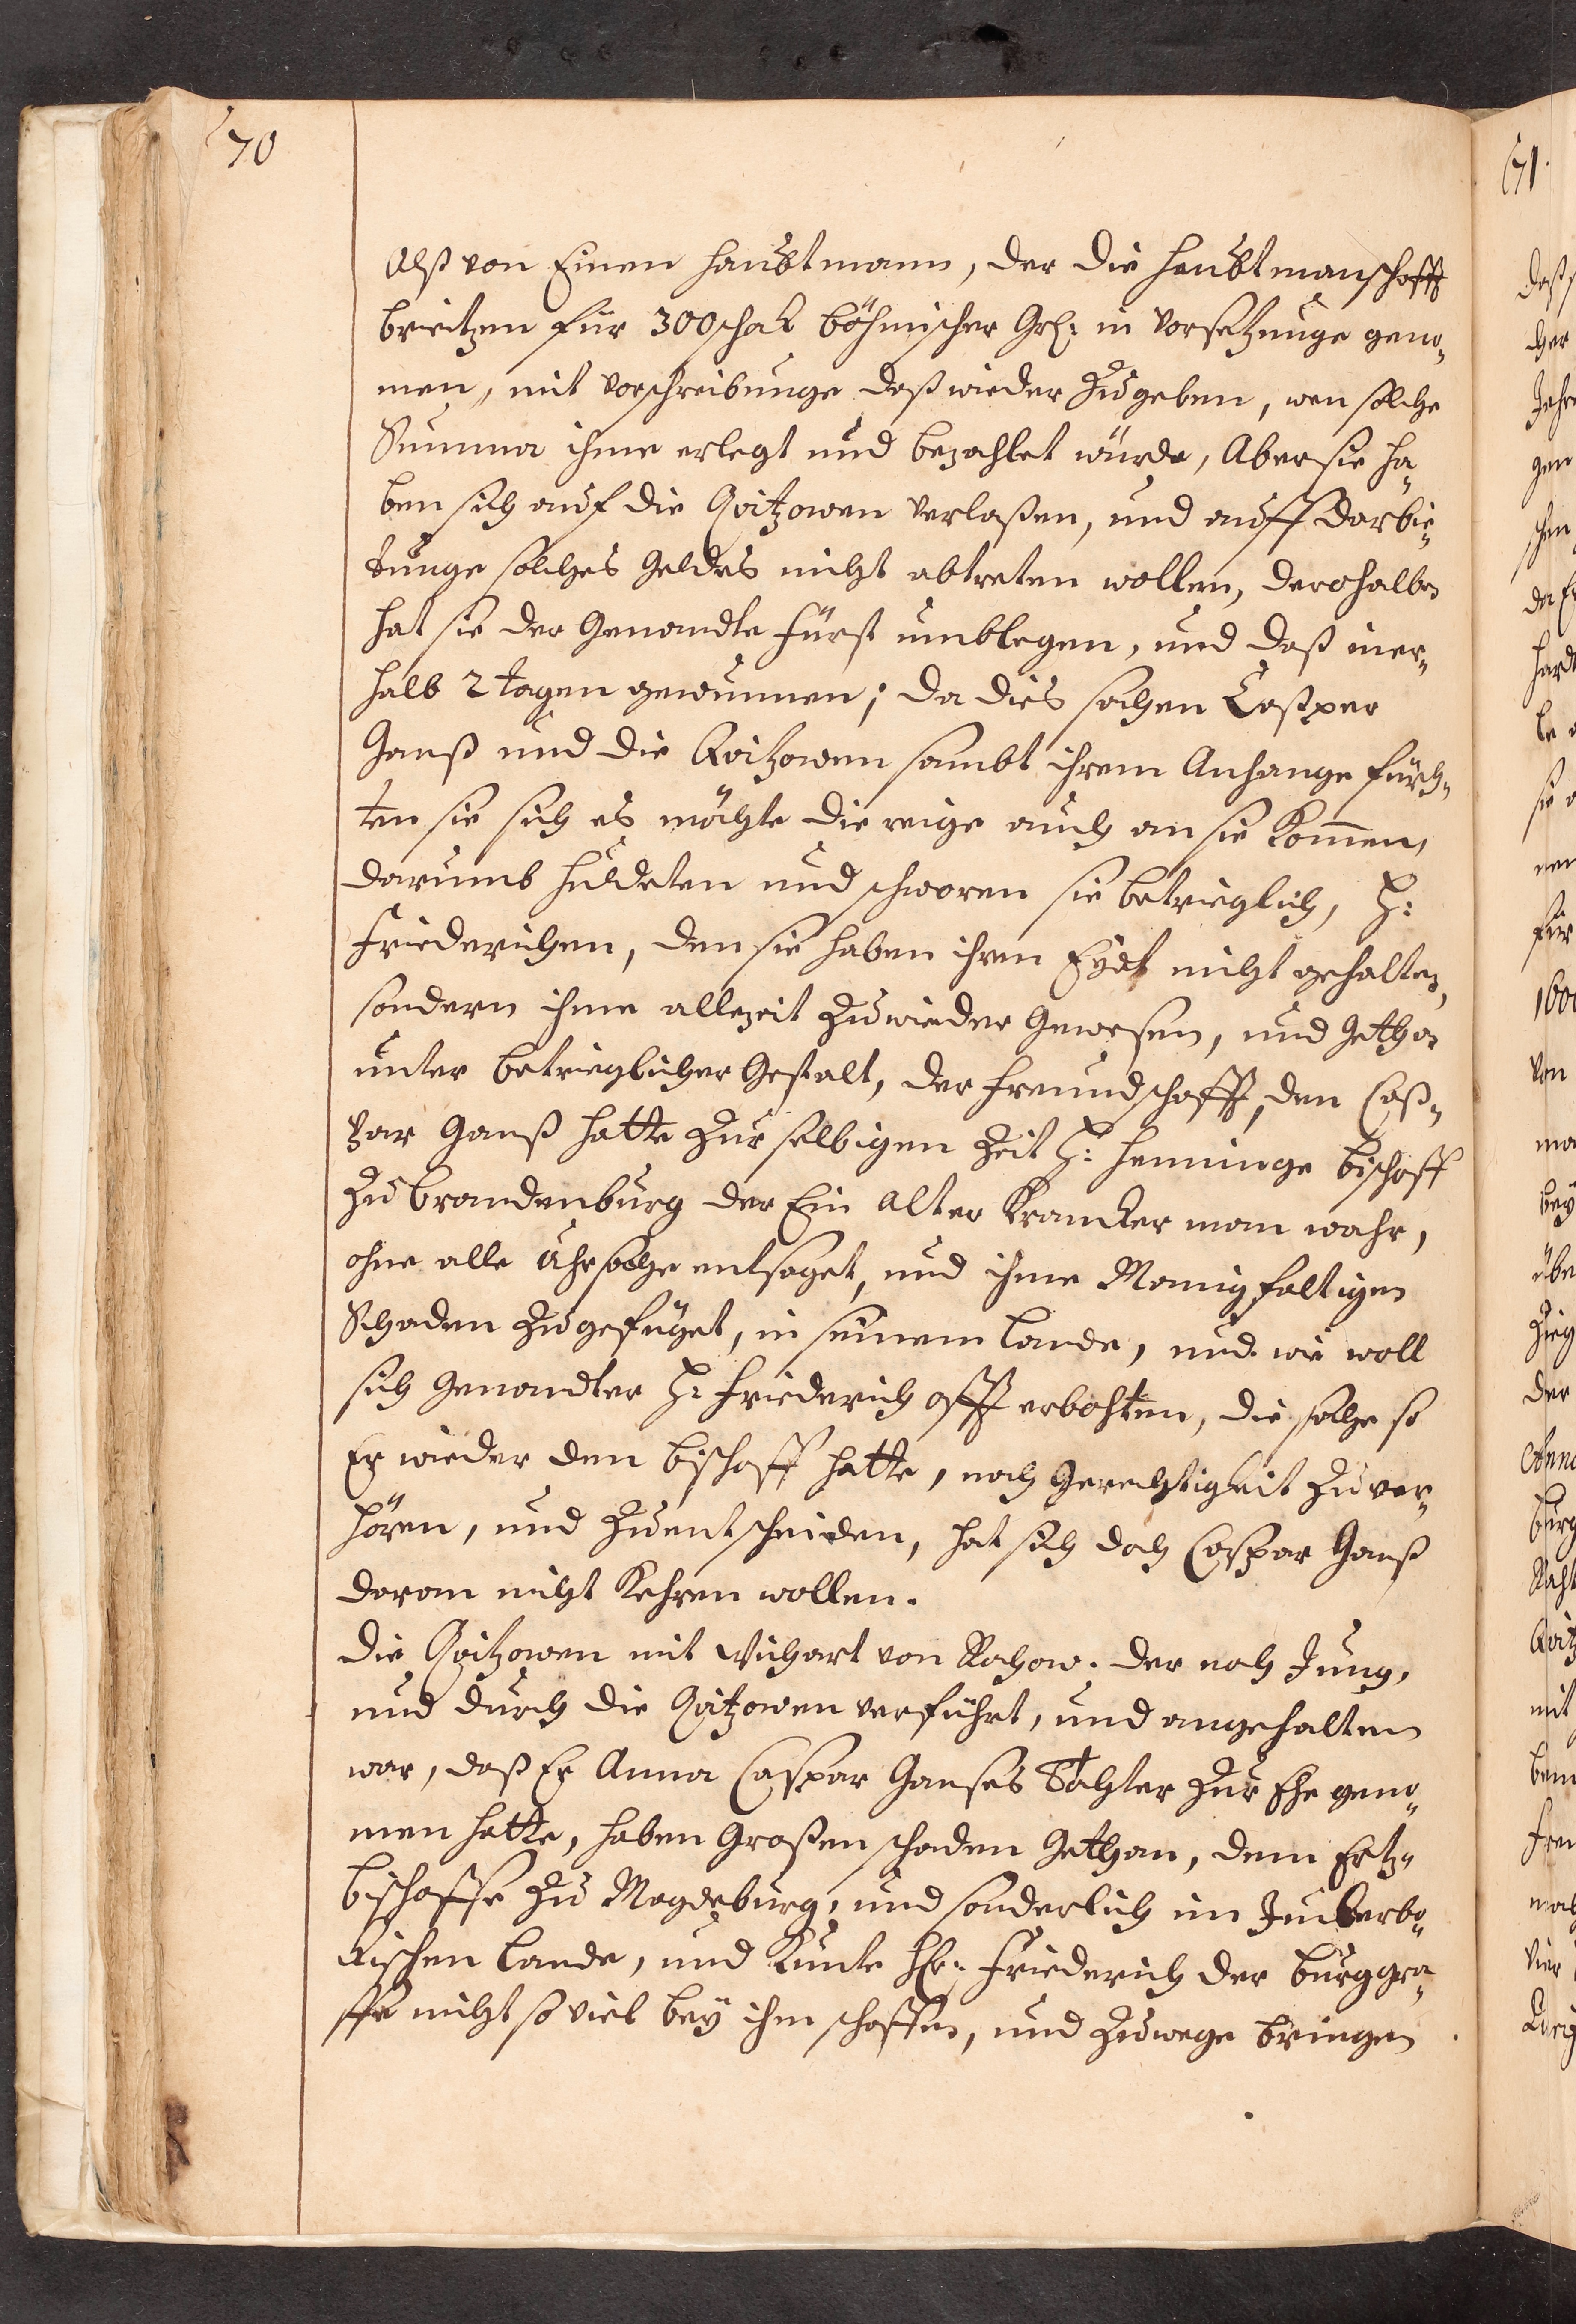 70
Alß von Einen Haubtmann, der die Haubtmanschafft
brietzen für 300 schok böhmischer Grh: in Vorsetzunge geno„
men, mit Vorschreibunge daß wieder zu geben, wen solche
Summa ihme erlegt und bezahlet würde, Aber sie ha„
ben sich auf die Qvitzowen verlaßen, und auff darbie„
tunge solches Geldes nicht abtreten wollen, derohalben
hat sie der Genandte Fürst umblegen, und daß iner„
halb 2 tagen gewunnen; da dies sachen Caßper
Ganß und die Qvitzowen sambt ihrem Anhange fürch„
ten sie sich es möchte die reige auch an sie kommen,
darumb huldeten und schworen sie betrieglich, H:
Friederichen, den sie haben ihren Eydt nicht gehalten,
sondern ihme allezeit zuwieder Gewesen, und Gethan
unter betrieglicher Gestalt, der Freundschafft, den Caß„
par Ganß hatte zur selbigen Zeit H: Henninge Bischoff
zu Brandenburg der Ein Alter Krancker man wahr,
ohne alle Uhrsache entsaget, und ihme Manigfaltigen
Schaden zugefüget, in seinem Lande, und wie woll
sich Genandter H: Friederich offt erbohten, die sache so
Er wieder den Bischoff hatte, nach Gerechtigkeit zu ver„
hören, und zuentscheiden, hat sich doch Caspar Ganß
daran nicht kehren wollen.
Die Qvitzowen mit Wichart von Rochow. der noch Jung,
und durch die Qvitzowen verführt, und angehalten
war, daß Er Anna Caspar Ganses Tochter zur Ehe geno„
men hatte, haben Großen schaden Gethan, dem Ertz„
bischoffe zu Magdeburg, und sonderlich im Juterbo„
kischen Lande, und kunte Hr: Friederich der Burggra„
ffe nicht so viel bey ihm schaffen, und zuwege bringen
71.